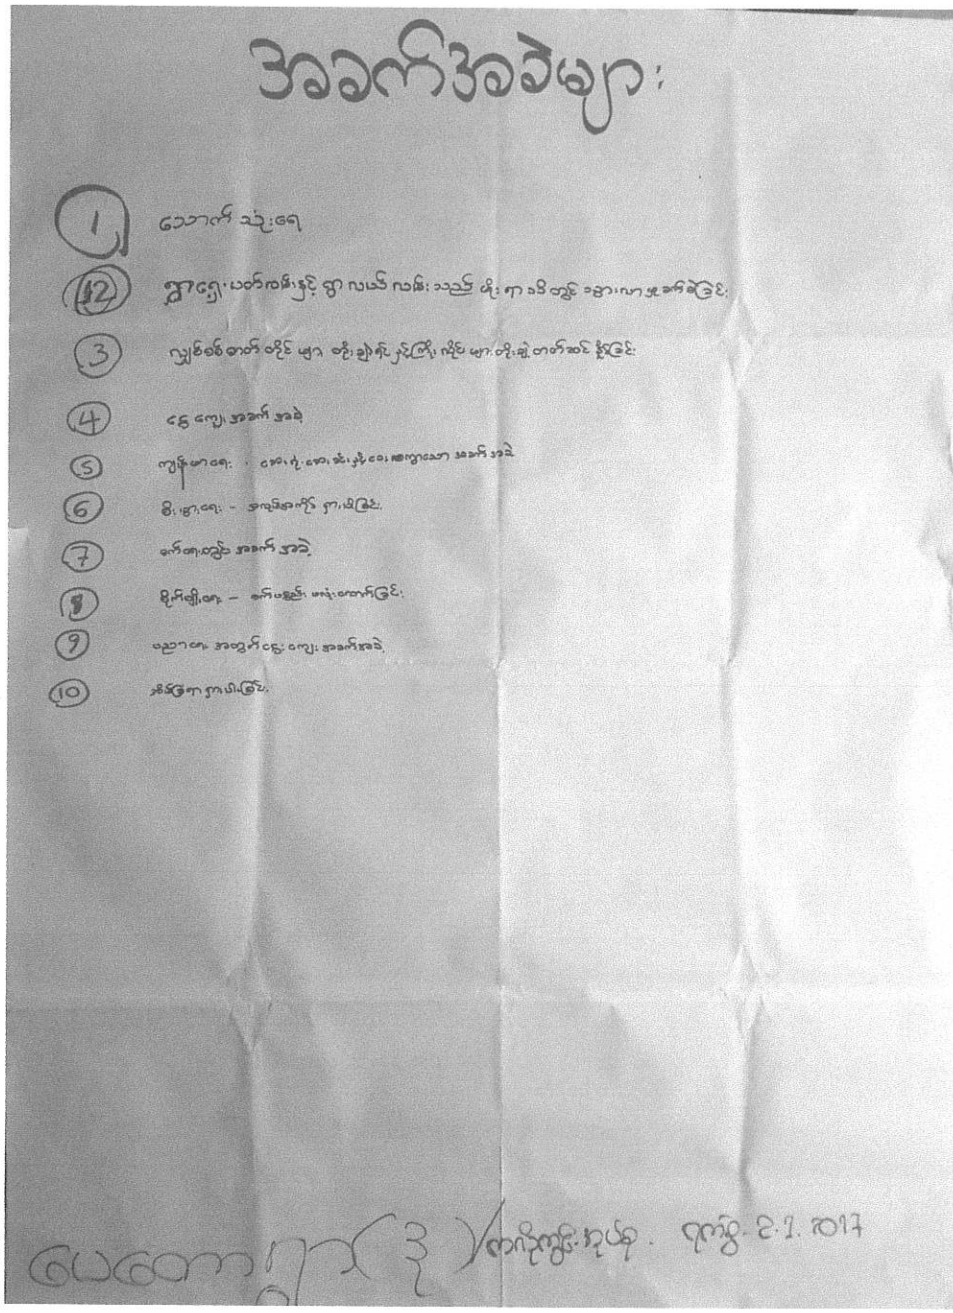 အခက်အခဲများ
1 သောက်သုံးရေ
2 ရွာရှေ့ပတ်လမ်းနှင့် ရွာလယ်လမ်းသည် မိုးရာသီတွင် သွားလာမှုခက်ခဲခြင်း
3 လျှပ်စစ်ဓာတ်တိုင်များ တိုးချဲ့ရန်နှင့်ကြိုးလိုင်းများတိုးချဲ့တတ်ဆင်နိုင်ခြင်း
4 ငွေကျေးအခက်အခဲ
5 ကျန်းမာရေး - ဆေးရုံ၊ ဆေးခန်းနှင့်ဝေးကွာသော အခက်အခဲ
6 စီးပွားရေး - အလုပ်အကိုင်ရှားပါးခြင်း
7 ခက်ရေးတွင် အခက်အခဲ
8 စိုက်ပျိုးရေး - စက်ပစ္စည်း မလုံလောက်ခြင်း
9 ပညာရေးအတွက်ငွေးကျေးအခက်အခဲ
10 အိမ်ခြံရာရှားပါးခြင်း
ပေတောရွာ (ဒို) / ကုပ်စု. ရက်စွဲ. 2.2.2017